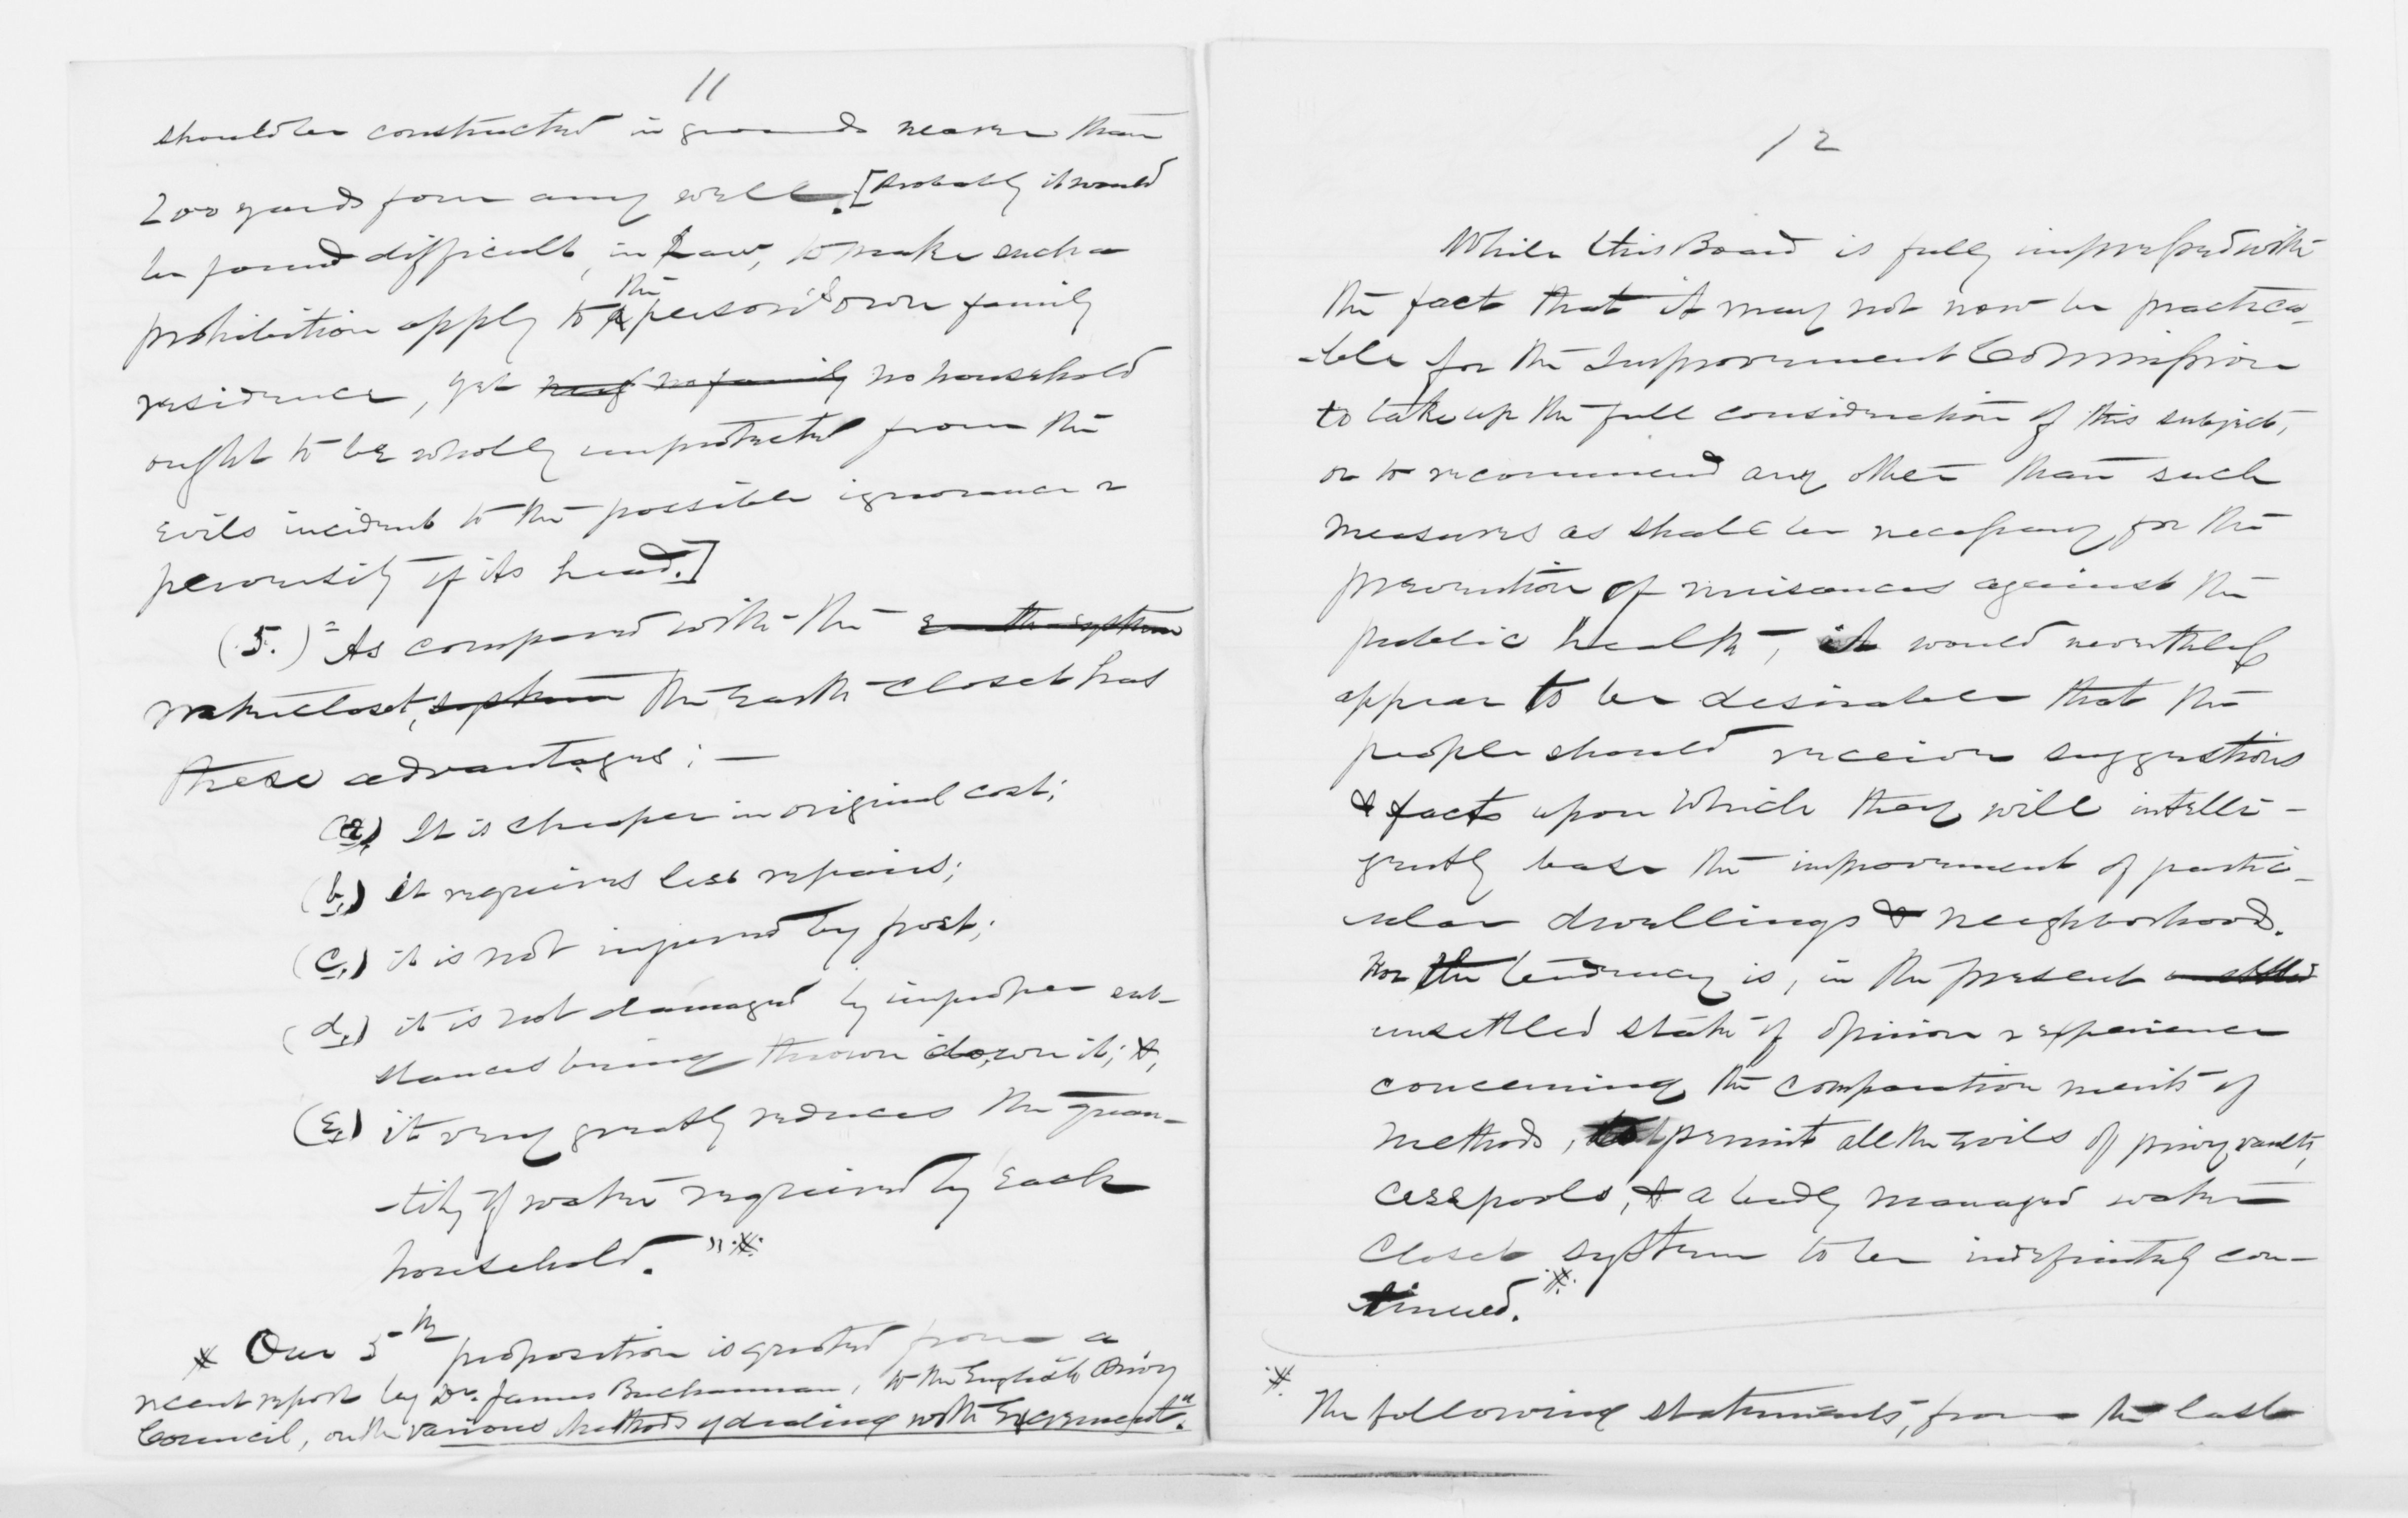 11
should be constructed in grounds nearer than
200 yards from any well. [Probably it would
be found difficult, in Law, to make such a
prohibition apply to the person's own family
residence, yet no family no household
ought to be wholly unprotected from the
evils incident to the possible ignorance &
perversity of its head.]
(5.) "As compared with the earth system
water closet, system the Earth-Closet has
these advantages: —
(a,) It is cheaper in original cost;
(b,) it requires less repairs;
(c,) it is not injured by frost;
(d,) it is not damaged by improper sub-
stances being thrown down it; &,
(e,) it very greatly reduces the quan-
-tity of water required by each
household." *
* Our 5th proposition is quoted from a
recent report by Dr. James Buchannan, to the English Privy
Council, on the various methods of dealing with Excrement."
12
While this Board is fully impressed with
the fact that it may not now be practica-
-ble for the Improvement Commission
to take up the full consideration of this subject,
or to recommend any other than such
measures as shall be necessary for the
prevention of nuisances against the
public health, it would nevertheless
appear to be desirable that the
people should receive suggestions
& facts upon which they will intelli-
gently base the improvement of partic-
ular dwellings & neighborhood.
For the tendency is, in the present unsettled
unsettled state of opinion & experience
concerning the comparative merits of
methods, to permit all the evils of privy vaults,
cesspools, & a badly managed water
closet system to be indefinitely con-
tinued. *
* The following statements, from the last